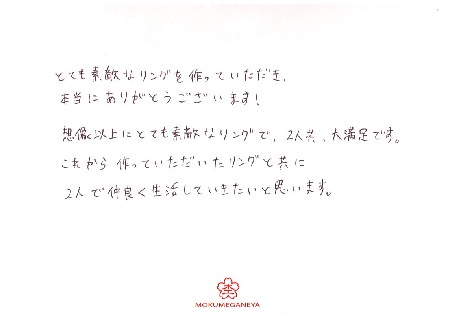 とても素敵なリングを作っていただき、
本当にありがとうございます!
想像以上にとても素敵なリングで、2人共、大満足です。
これから作っていただいたリングと共に
2人で仲良く生活していきたいと思います。
MOKUMEGANEYA